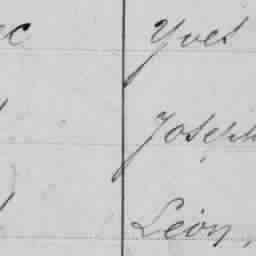 ec Yves
Joseph
Léon,